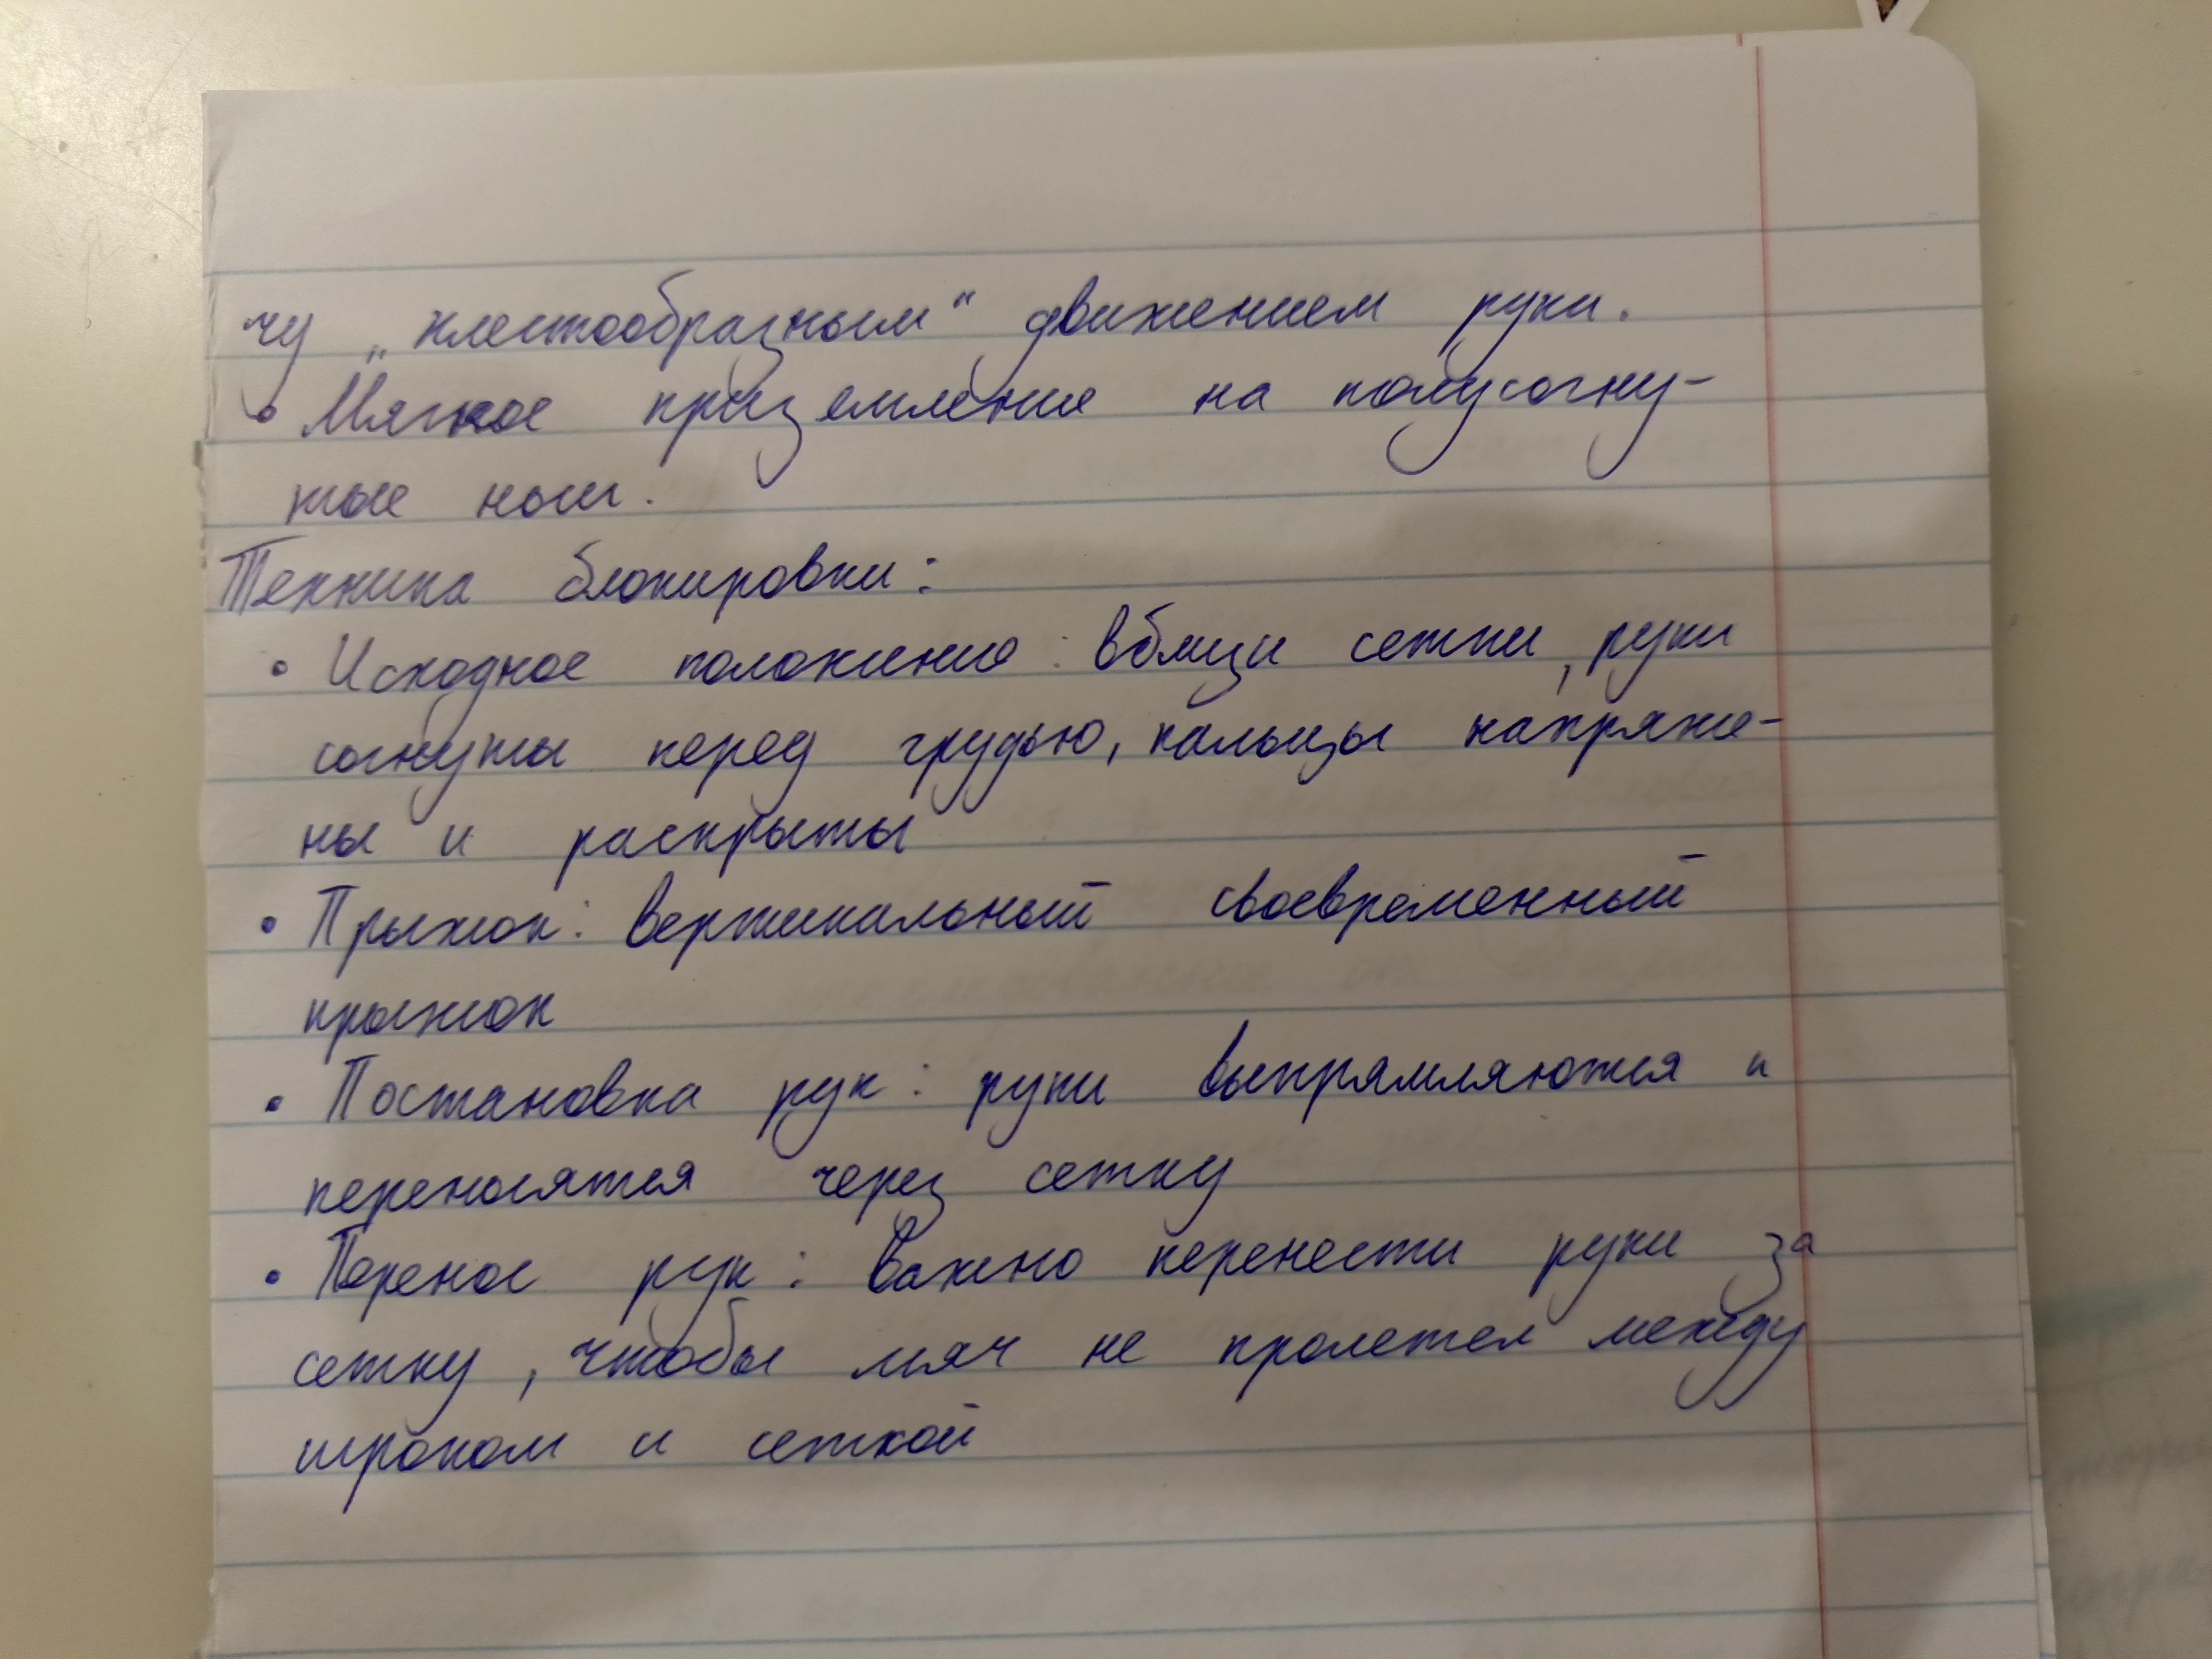 чу „хлестообразным“ движением руки.
• Мягкое приземление на полусогну-
тые ноги.
Техника блокировки:
• Исходное положение: вблизи сетки, руки
согнуты перед грудью, пальцы напряже-
ны и раскрыты
• Прыжок: вертикальный своевременный
прыжок
• Постановка рук: руки выпрямляются и
переносятся через сетку
• Перенос рук: важно перенести руки за
сетку, чтобы мяч не пролетел между
игроком и сеткой